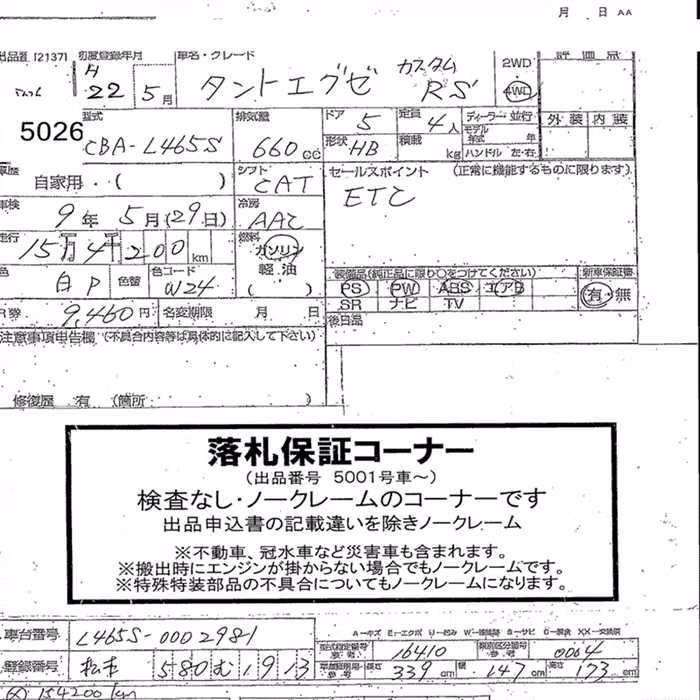 月 日 AA
出品番 [2137] 初度登録年月 車名・グレード 2WD 評価点
H22 5月 タントエグゼ カスタム RS 4WD
5026
型式 排気量 ドア 5 定員 4人 ディーラー・並行 外装 内装
CBA-L465S 660cc 形状 HB 積載 kg モデル年式 年
ハンドル 左・右
車歴 自家用・( ) シフト CAT セールスポイント (正常に機能するものに限ります)
車検 9年 5月(29日) 冷房 AAC ETC
走行 15万4千200km 燃料 ガソリン 軽油 ( )
色 白P 色替 色コード W24
装備品(純正品に限り○をつけてください) 新車保証書
PS PW ABS エアB 有・無
SR ナビ TV
R券 9,460円 名変期限 月 日 後日品
注意事項申告欄 (不具合内容等は具体的に記入して下さい)
修復歴 有 (箇所 )
落札保証コーナー
(出品番号 5001号車～)
検査なし・ノークレームのコーナーです
出品申込書の記載違いを除きノークレーム
※不動車、冠水車など災害車も含まれます。
※搬出時にエンジンが掛からない場合でもノークレームです。
※特殊特装部品の不具合についてもノークレームになります。
車台番号 L465S-0002981 型式指定番号 参考 16410 類別区分番号 参考 0004
登録番号 松本 580む1913 長さ 339cm 幅 147cm 高さ 173cm
154200km